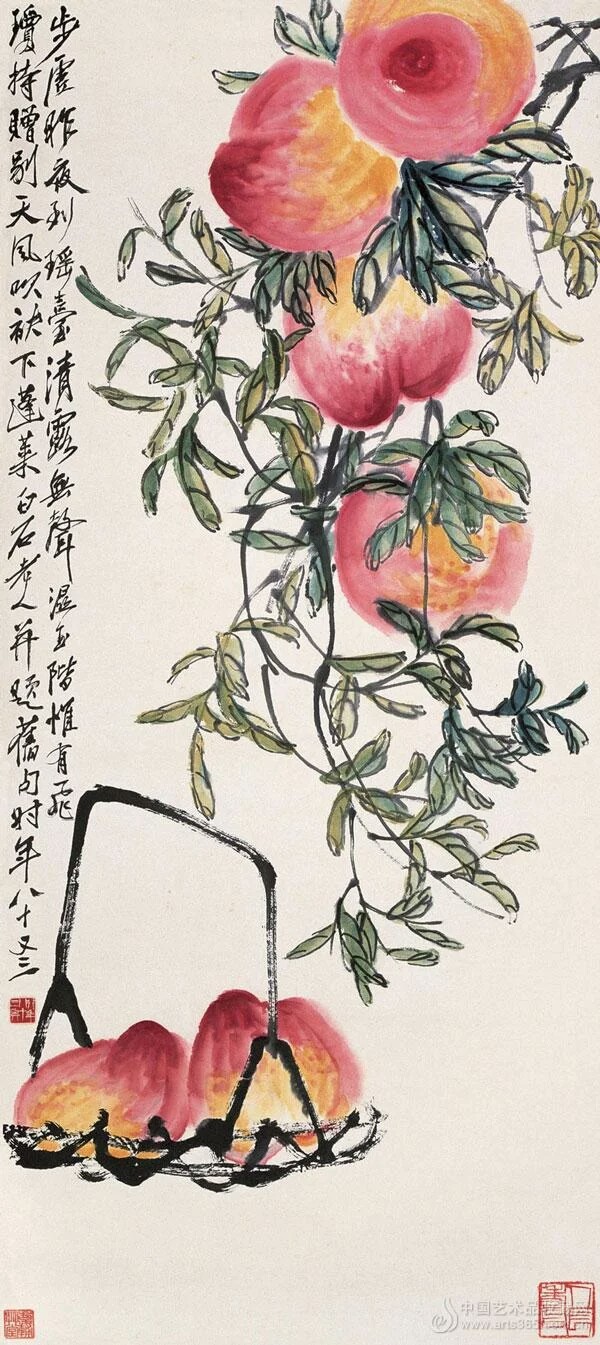 步虛昨夜到瑤臺清露無聲濕玉階惟有飛
瓊持贈別天風吹袂下蓬萊白石老人并題舊句时年八十又三
中国艺术品